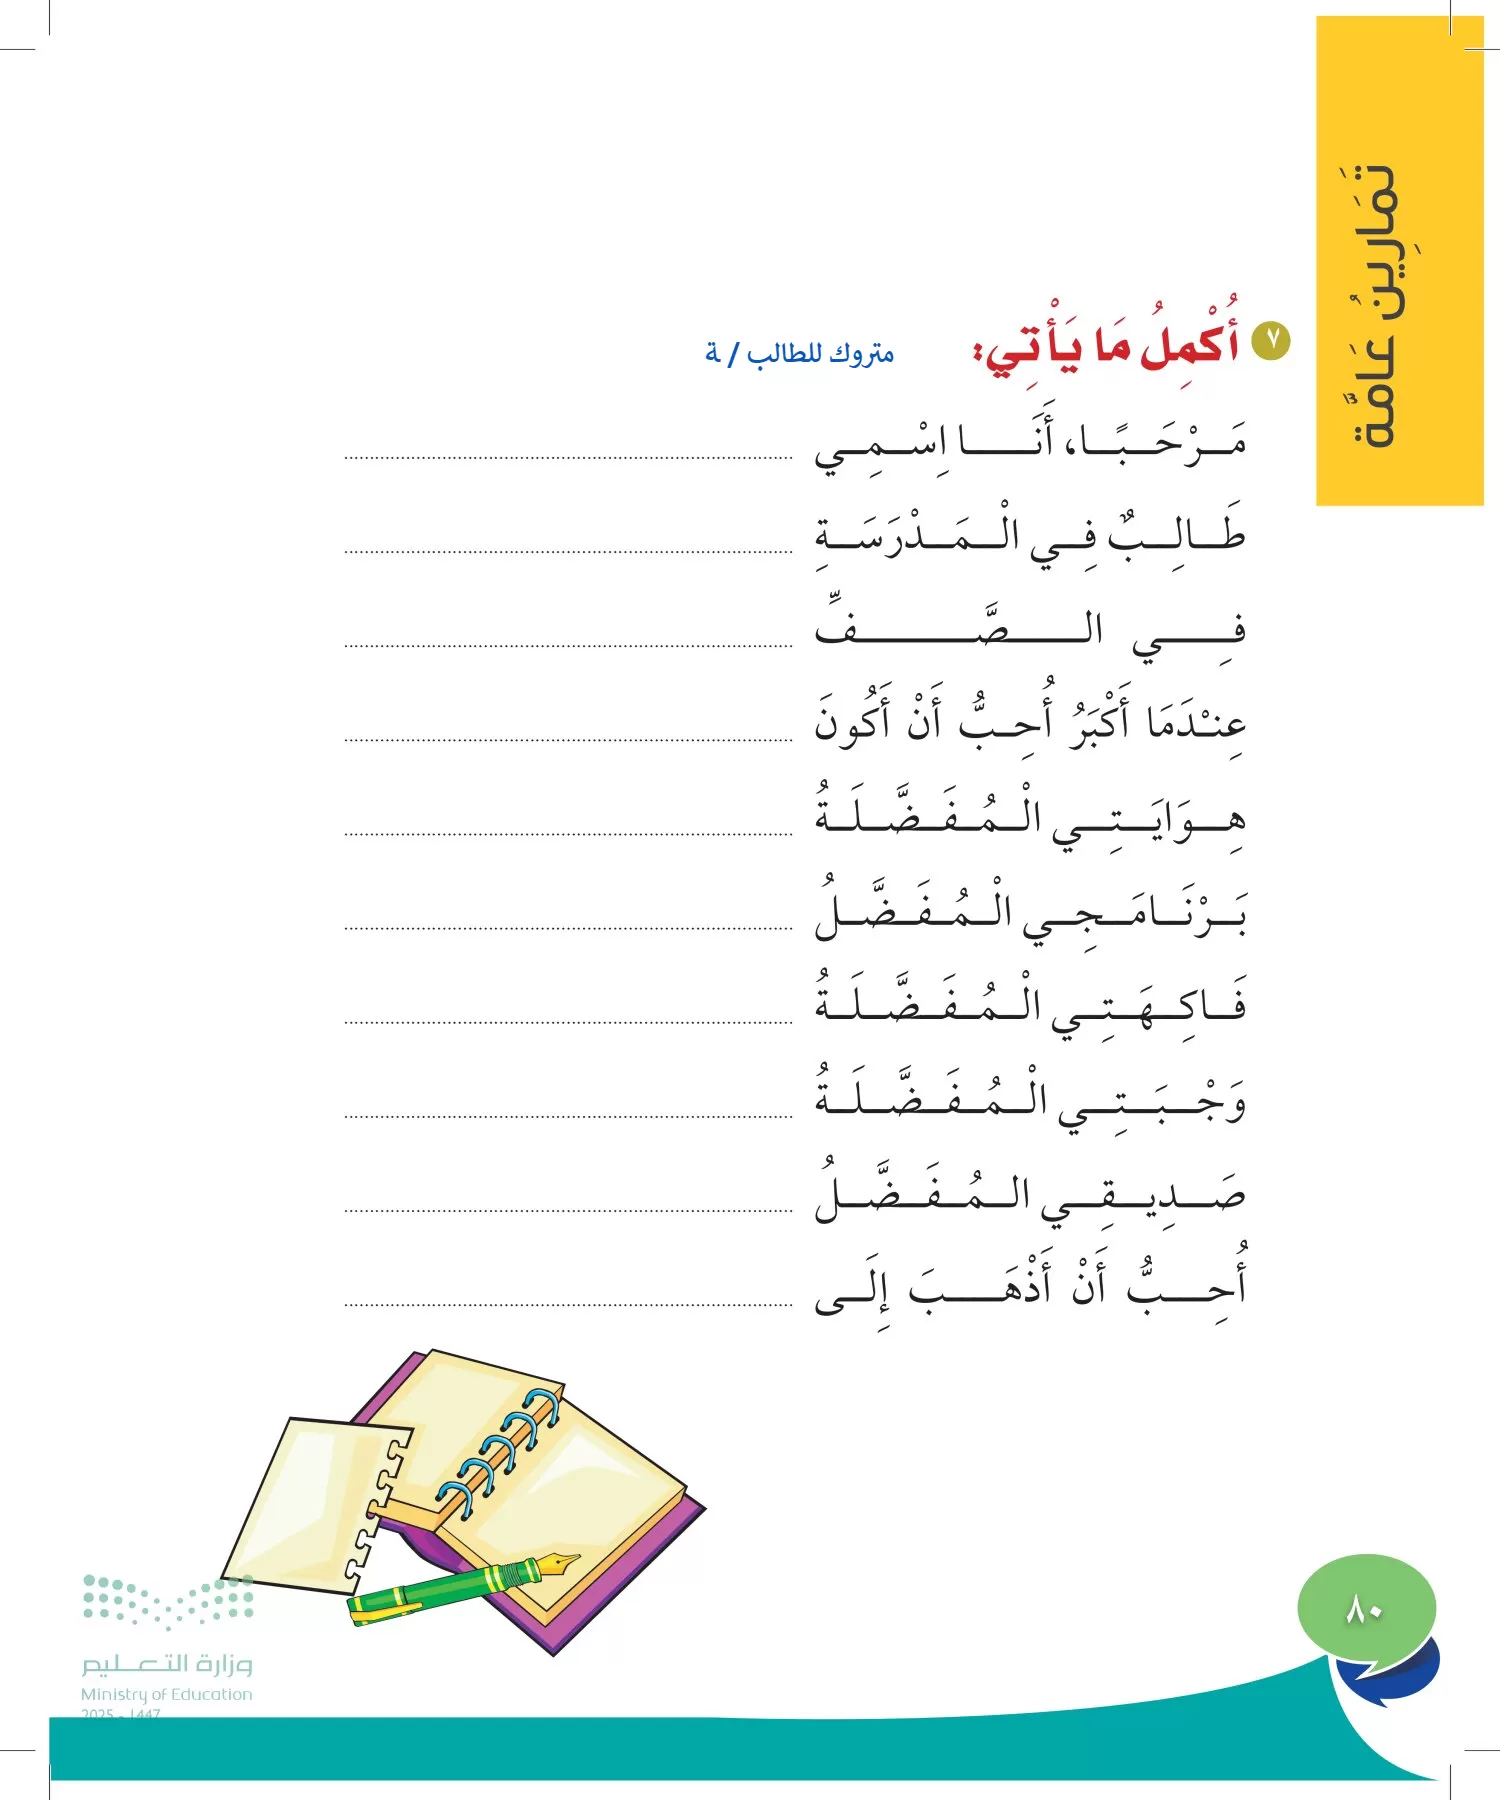 تَمَارِينُ عَامَّة
٧ أُكْمِلُ مَا يَأْتِي: متروك للطالب / ة
مَرْحَبًا، أَنَا اِسْمِي ....................
طَالِبٌ فِي الْمَدْرَسَةِ ....................
فِي الصَّفِّ ....................
عِنْدَمَا أَكْبَرُ أُحِبُّ أَنْ أَكُونَ ....................
هِوَايَتِي الْمُفَضَّلَةُ ....................
بَرْنَامَجِي الْمُفَضَّلُ ....................
فَاكِهَتِي الْمُفَضَّلَةُ ....................
وَجْبَتِي الْمُفَضَّلَةُ ....................
صَدِيقِي المُفَضَّلُ ....................
أُحِبُّ أَنْ أَذْهَبَ إِلَى ....................
٨٠
وزارة التعليم
Ministry of Education
2025 - 1447